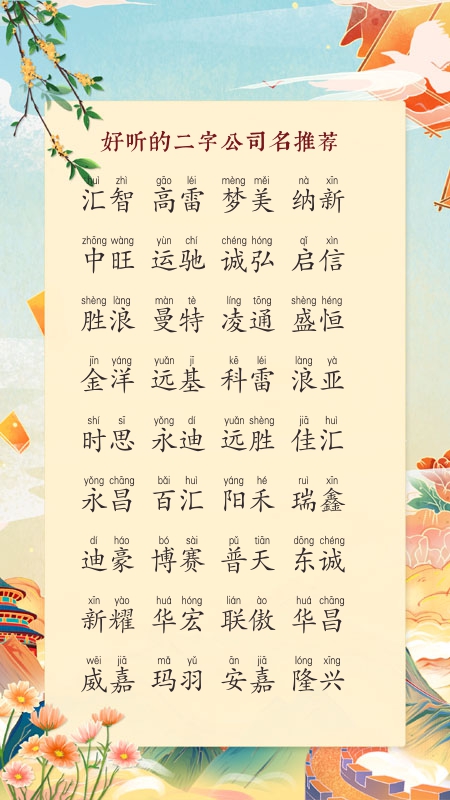 好听的二字公司名推荐
huì zhì gāo léi mèng měi nà xīn
汇智 高雷 梦美 纳新
zhōng wàng yùn chí chéng hóng qǐ xìn
中旺 运驰 诚弘 启信
shèng làng màn tè líng tōng shèng héng
胜浪 曼特 凌通 盛恒
jīn yáng yuǎn jī kē léi làng yà
金洋 远基 科雷 浪亚
shí sī yǒng dí yuǎn shèng jiā huì
时思 永迪 远胜 佳汇
yǒng chāng bǎi huì yáng hé ruì xīn
永昌 百汇 阳禾 瑞鑫
dí háo bó sài pǔ tiān dōng chéng
迪豪 博赛 普天 东诚
xīn yào huá hóng lián ào huá chāng
新耀 华宏 联傲 华昌
wēi jiā mǎ yǔ ān jiā lóng xīng
威嘉 玛羽 安嘉 隆兴